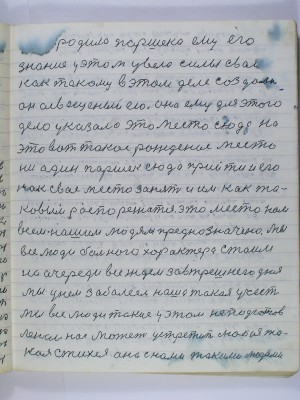 родила паршека ему его
знание у этом увело силы свои
как такому в этом деле создала
она его. она ему для этого
дело указала это место сюда на
это вот такое рождение место
ни один паршек сюда прийти и его
как свое место занять и им как та-
ковым распоряжатся. это место нам
всем нашим людям предназначено. мы
все люди больного характера стоим
на очереди все ждем завтрешнего дня
мы у нем заболеем наша такая участ
мы все люди такие у этом неподготов
леном нас может устретит любая та-
кая стихея она с нами такими людями